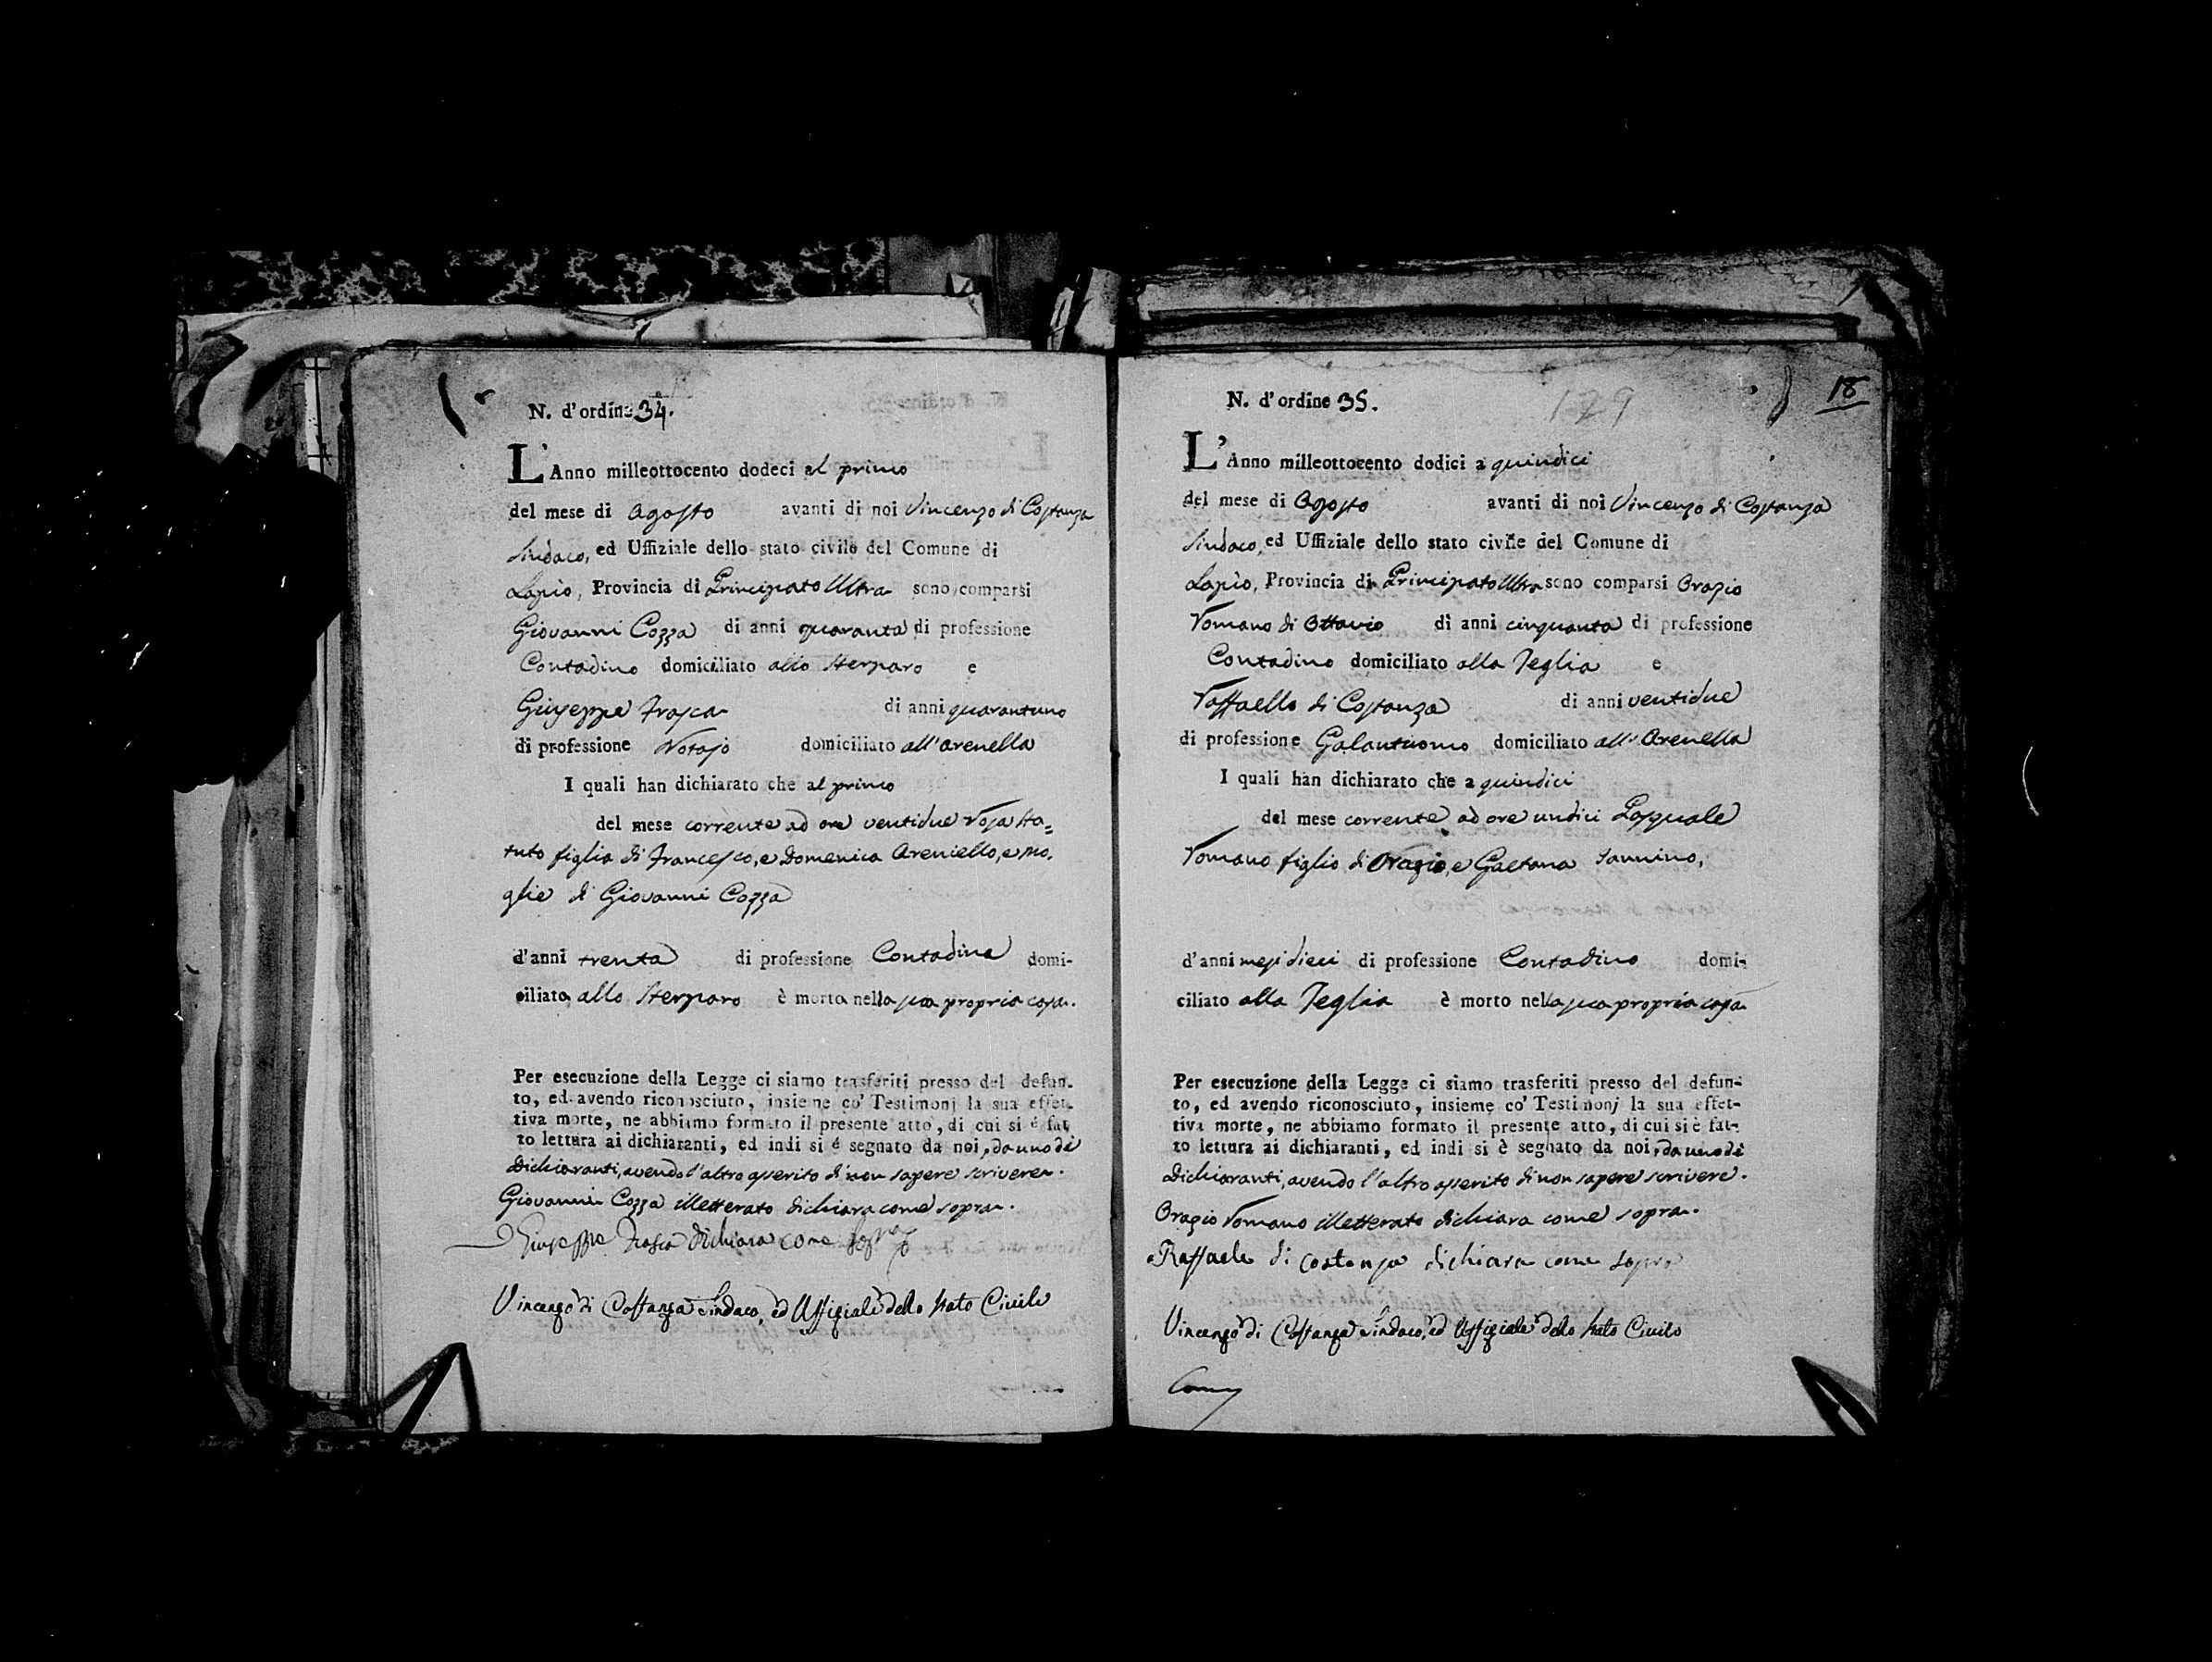 N. d'ordine 34.
L'Anno milleottocento dodeci al primo
del mese di Agosto avanti di noi Vincenzo di Costanza
Sindaco, ed Uffiziale dello stato civile del Comune di
Lapio, Provincia di Principato Ultra sono comparsi
Giovanni Cozza di anni quaranta di professione
Contadino domiciliato allo Sterparo e
Giuseppe Frasca di anni quarantuno
di professione Notajo domiciliato all'Arenella
I quali han dichiarato che al primo
del mese corrente ad ore ventidue Rosa Sta=
tuto figlia di Francesco, e Domenica Areniello, e mo.
glie di Giovanni Cozza
d'anni trenta di professione Contadina domi-
ciliata allo Sterparo è morta nella sua propria casa.
Per esecuzione della Legge ci siamo trasferiti presso del defun-
to, ed avendo riconosciuto, insieme co' Testimonj la sua effet-
tiva morte, ne abbiamo formato il presente atto, di cui si è fat-
to lettura ai dichiaranti, ed indi si è segnato da noi, da uno de'
dichiaranti, avendo l'altro asserito di non sapere scrivere.
Giovanni Cozza illetterato dichiara come sopra.
Giuseppe Frasca dichiara come sopra
Vincenzo di Costanza Sindaco, ed Uffiziale dello Stato Civile
18
129
N. d'ordine 35.
L'Anno milleottocento dodici a quindici
del mese di Agosto avanti di noi Vincenzo di Costanza
Sindaco, ed Uffiziale dello stato civile del Comune di
Lapio, Provincia di Principato Ultra sono comparsi Orazio
Romano di Ottavio di anni cinquanta di professione
Contadino domiciliato alla Teglia e
Raffaello di Costanza di anni ventidue
di professione Galantuomo domiciliato all'Arenella
I quali han dichiarato che a quindici
del mese corrente ad ore undici Pasquale
Romano figlio di Orazio, e Gaetana Sannino,
d'anni mesi dieci di professione Contadino domi-
ciliato alla Teglia è morto nella sua propria casa
Per esecuzione della Legge ci siamo trasferiti presso del defun-
to, ed avendo riconosciuto, insieme co' Testimonj la sua effet-
tiva morte, ne abbiamo formato il presente atto, di cui si è fat-
to lettura ai dichiaranti, ed indi si è segnato da noi, da uno de'
dichiaranti, avendo l'altro asserito di non sapere scrivere.
Orazio Romano illetterato dichiara come sopra.
Raffaele di Costanza dichiara come sopra
Vincenzo di Costanza Sindaco, ed Uffiziale dello Stato Civile